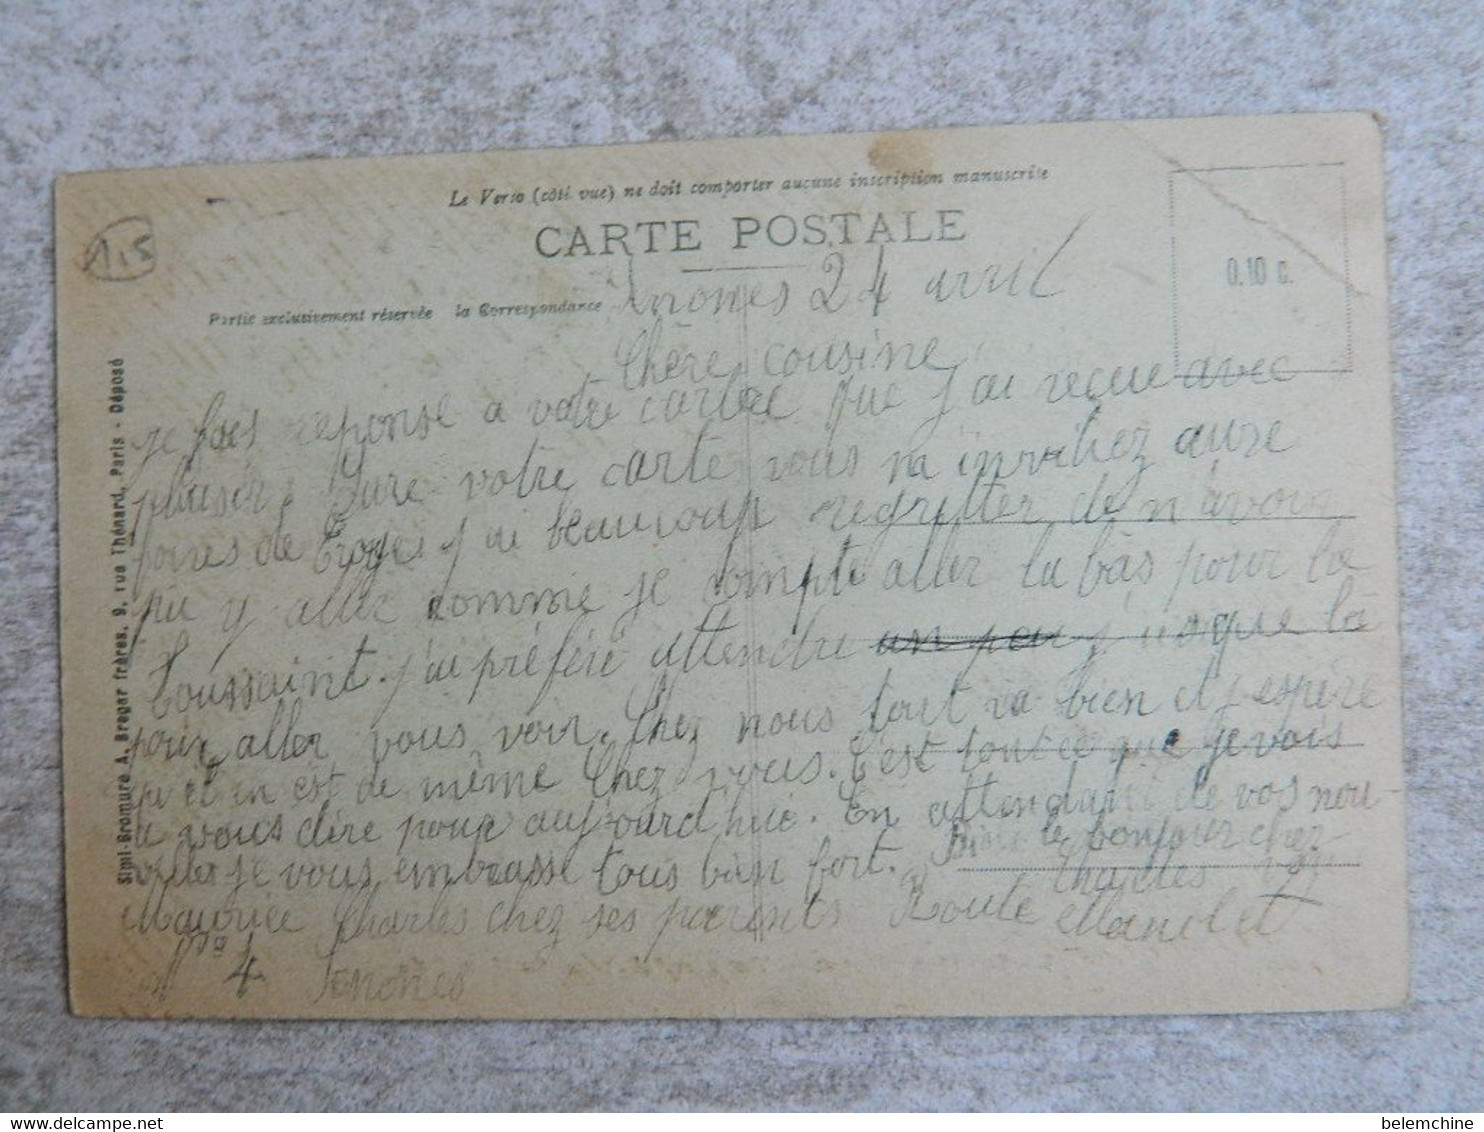 Le Verso (côté vue) ne doit comporter aucune inscription manuscrite
CARTE POSTALE
1,5
0.10 c.
24 avril
Partie exclusivement réservée la Correspondance
Chère cousine
je fais reponse a votre carte que j'ai reçue avec
plaisir. Sure votre carte vous m'a invitiez aure
foires de Troyes j'ai beaucoup regretter de n'avoir
pu y aller comme je compte aller la bàs pour la
Toussaint. j'ai préféré attendre un peu jusque là
pour aller vous voir. Chez nous tout va bien et j'espère
qu'il en est de même Chez vous. C'est tout ce que je vois
a vous dire pour aujourd'hui. En attendant de vos nou-
velles je vous embrasse tous bien fort. le bonjour chez
Charles
Maurice Charles chez ses parents Route
No 4
Simi-Bromure A. Breger frères, 9, rue Thénard, Paris - Déposé
belemchine